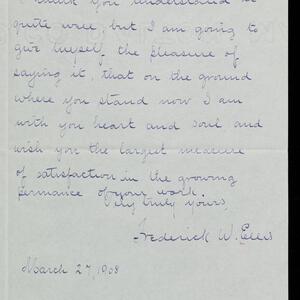 I thank you understand it
quite well, but I am going to
give myself the pleasure of
saying it, that on the ground
where you stand now I am
with you heart and soul and
wish you the largest measure
of satisfaction in the growing
permance of your work.
Very truly yours,
Frederick W. Ellis
March 27, 1908